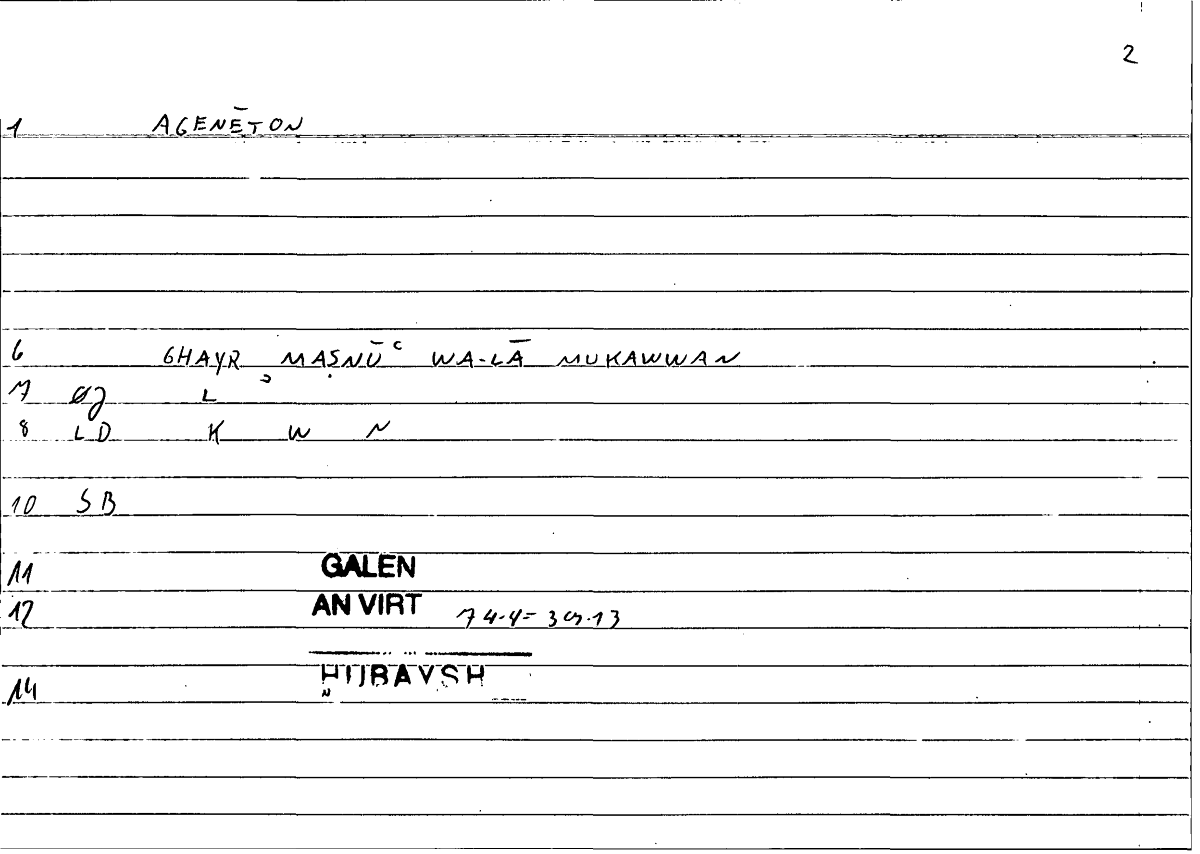 2
1 AGENĒTON
6 GHAYR MAṢNŪʿ WA-LĀ MUKAWWAN
7 L
8 LD K W N
10 SB
11 GALEN
12 AN VIRT
14 ḤUBAYSH